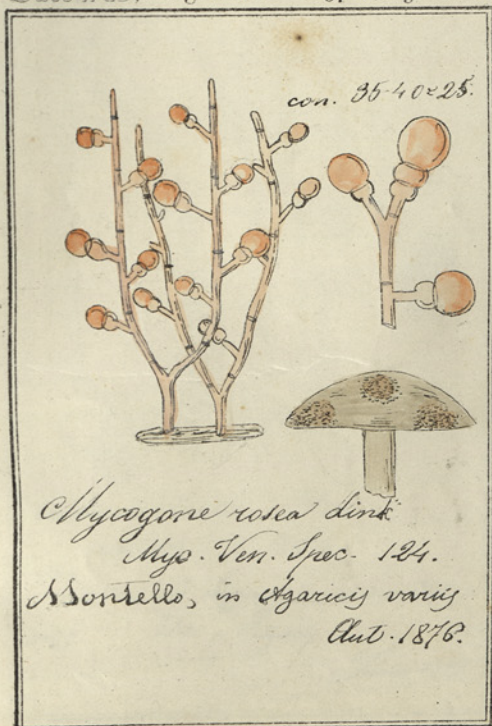 con. 35-40 = 25.
Mycogone rosea Link
Myc. Ven. Spec. 124.
Montello, in Agaricis variis
Aut. 1876.